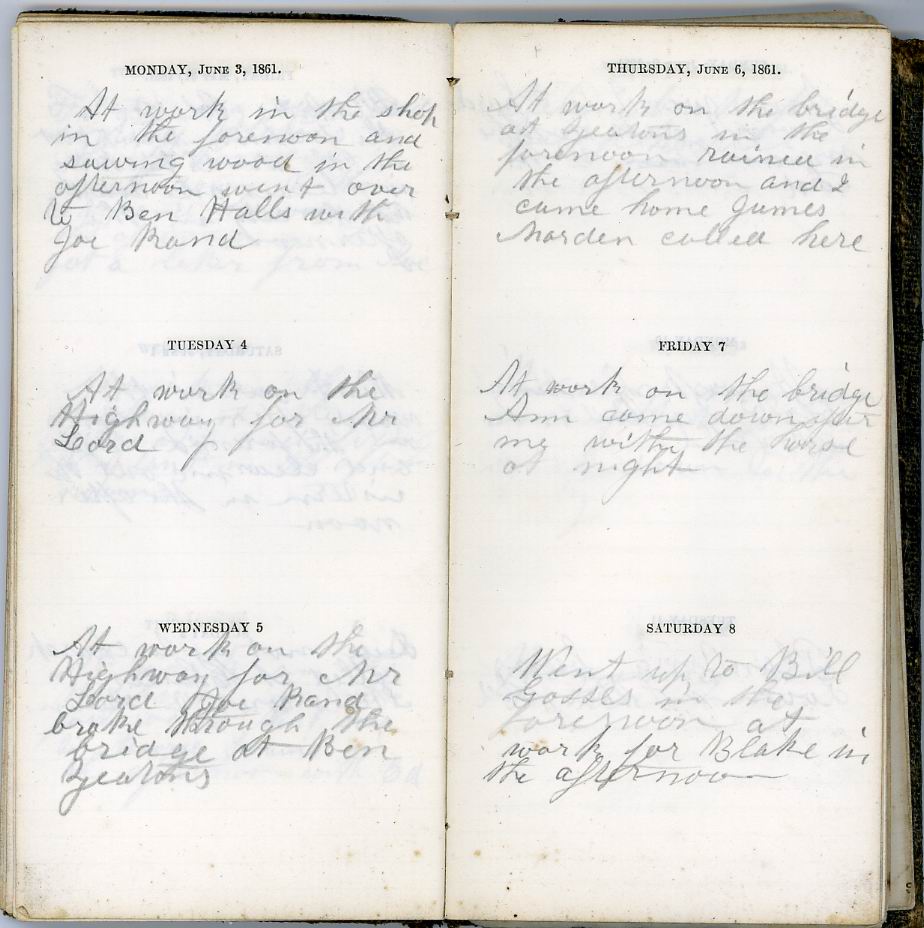 MONDAY, JUNE 3, 1861.
At work in the shop
in the forenoon and
sawing wood in the
afternoon went over
to Ben Halls with
Joe Rand
TUESDAY 4
At work on the
Highway for Mr
Lord
WEDNESDAY 5
At work on the
Highway for Mr
Lord Joe Rand
broke through the
bridge at Ben
Yeatons
THURSDAY, JUNE 6, 1861.
At work on the bridge
at Yeatons in the
forenoon rained in
the afternoon and I
came home James
Marden called here
FRIDAY 7
At work on the bridge
Ann came down for
me with the horse
at night
SATURDAY 8
Went up to Bill
Gosses in the
forenoon at
work for Blake in
the afternoon